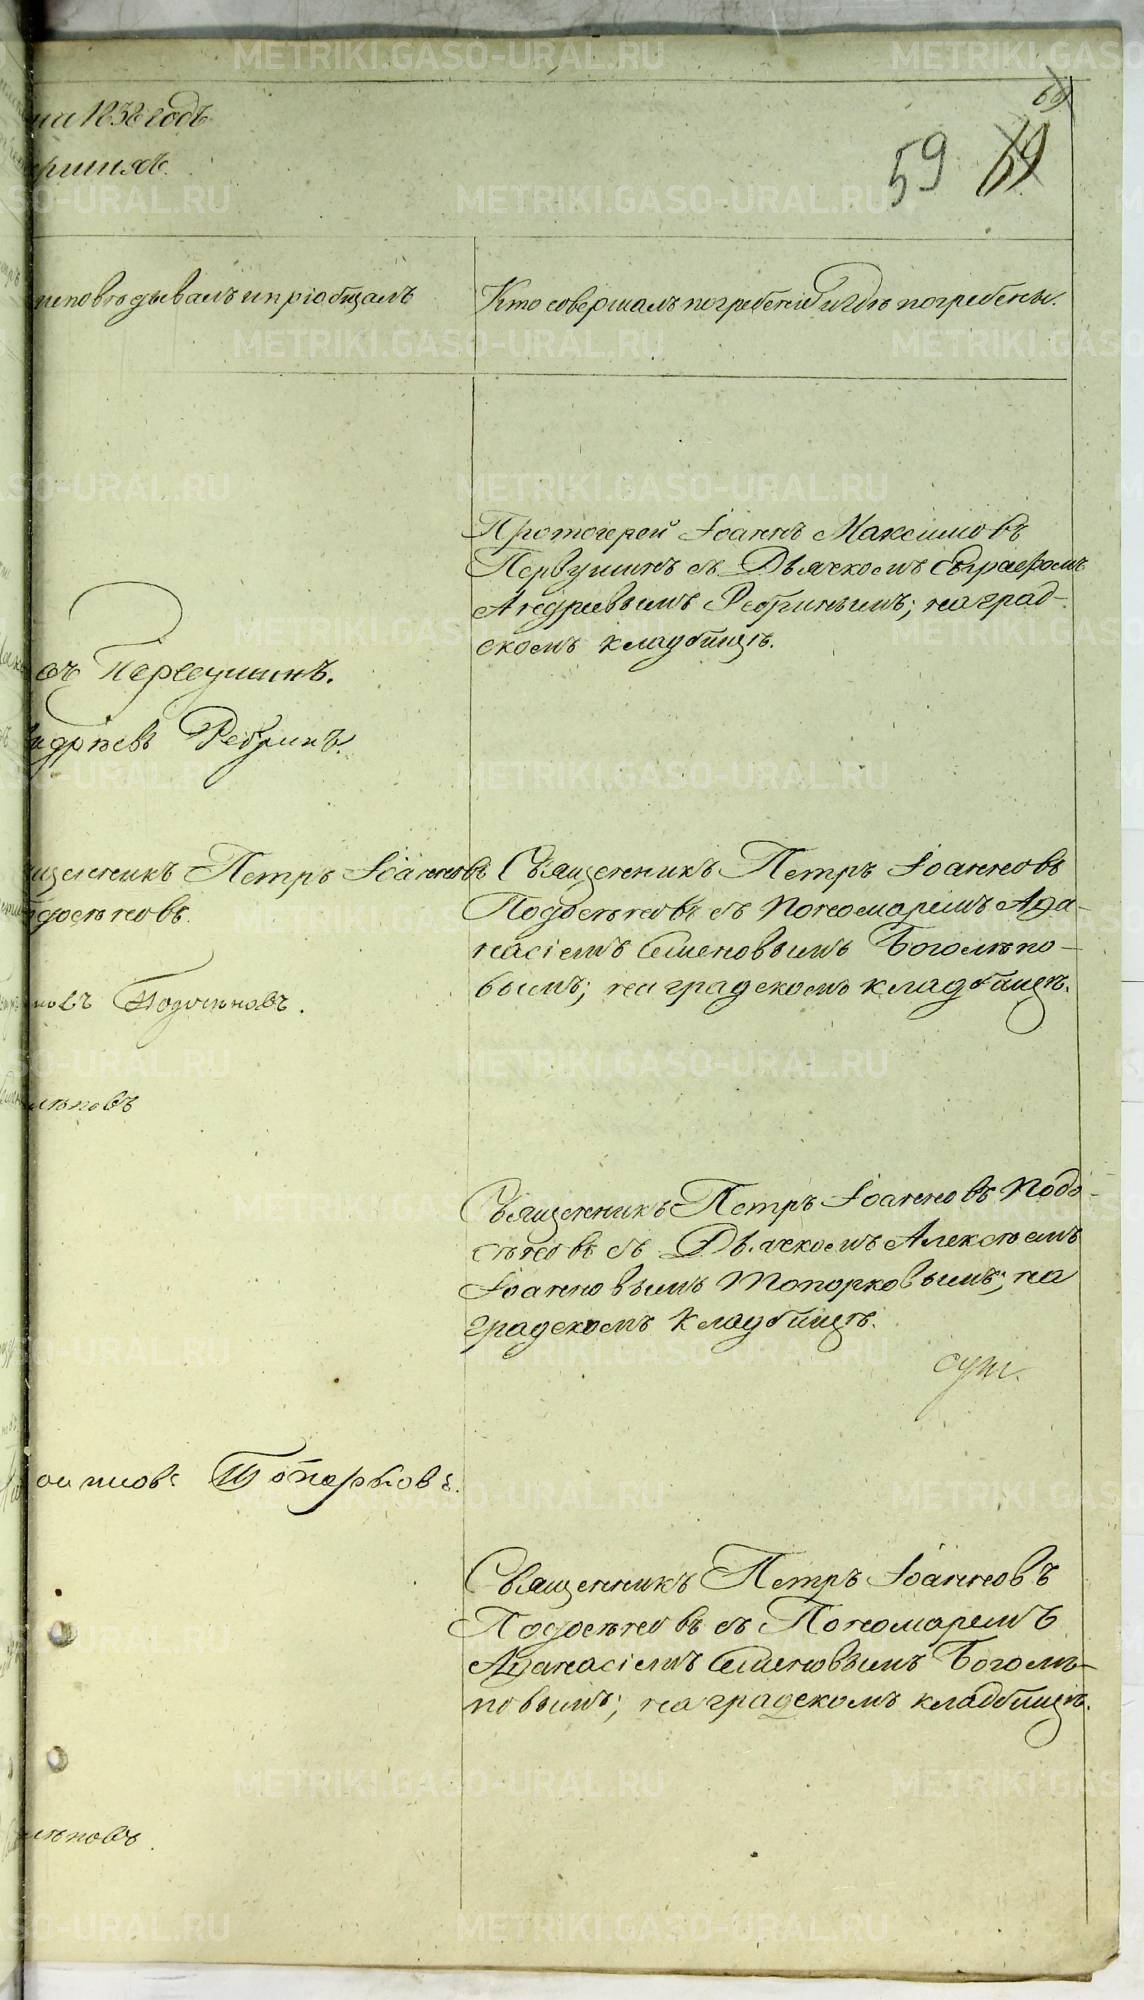 METRIKI.GASO-URAL.RU
69
59 69
1838 годъ
исповѣдывалъ и пріобщалъ
Кто совершалъ погребеніе и гдѣ погребены.
Протоіерей Іоаннъ Максимовъ
Первушинъ съ Дьячкомъ Евграфомъ
Андреевымъ Ребринымъ; на град-
скомъ кладбищѣ.
Первушинъ.
Андрѣевъ Ребринъ.
щенникъ Петръ Іоанновъ
досѣновъ.
новъ Подосѣновъ.
лѣповъ
Священникъ Петръ Іоанновъ
Подосѣновъ съ Пономаремъ Афа-
насіемъ Семеновымъ Боголѣпо-
вымъ; на градскомъ кладбищѣ.
Священникъ Петръ Іоанновъ Подо-
сѣновъ съ Дьячкомъ Алексѣемъ
Іоанновымъ Топорковымъ; на
градскомъ кладбищѣ.
Топорковъ.
Священникъ Петръ Іоанновъ
Подосѣновъ съ Пономаремъ
Афанасіемъ Семеновымъ Боголѣ-
повымъ; на градскомъ кладбищѣ.
лѣповъ.